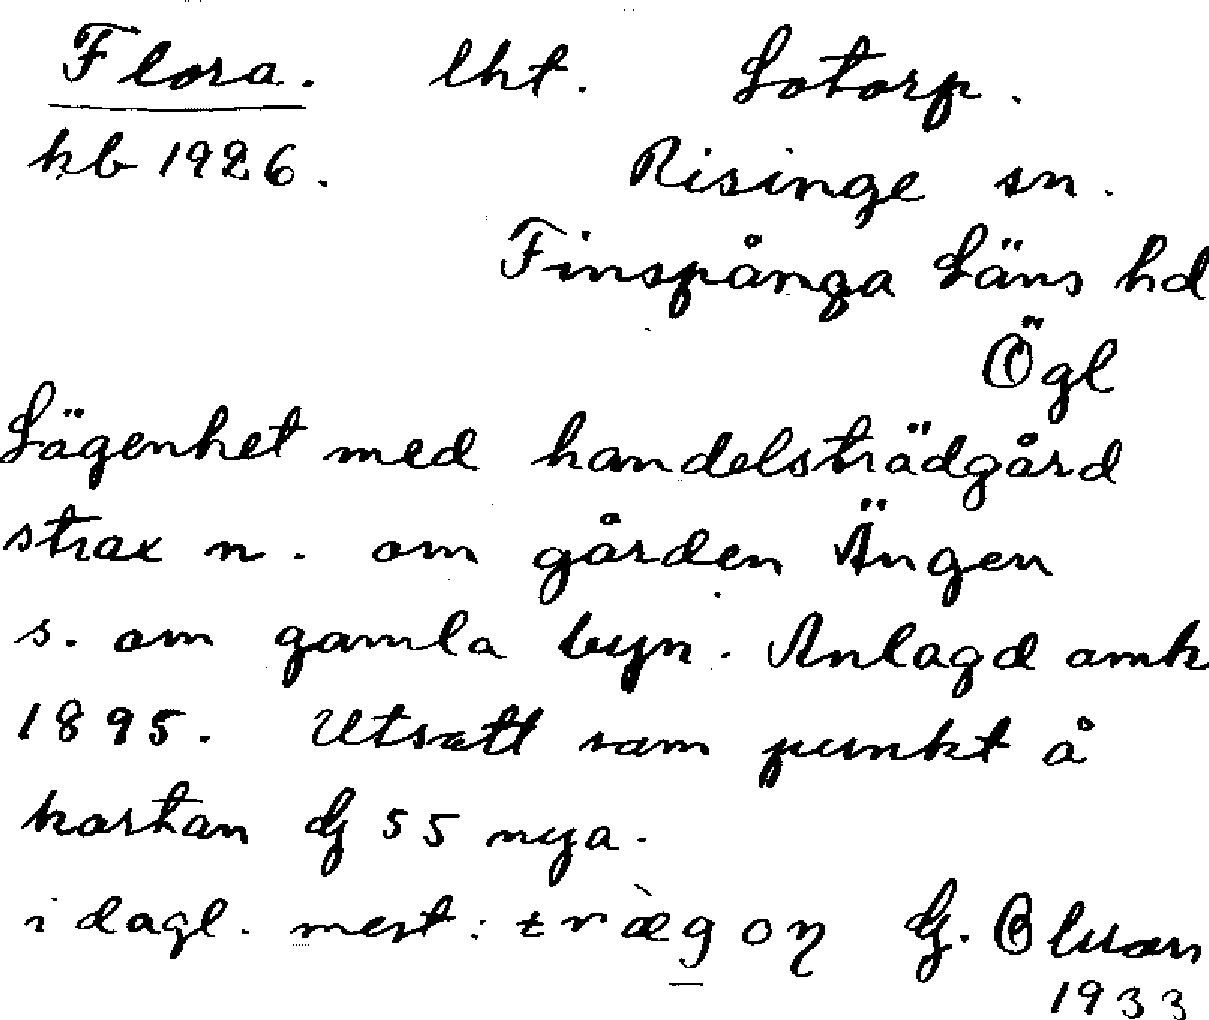 Flora. lht. Lotorp.
kb 1926. Risinge sn.
Finspånga Läns hd
Ögl
Lägenhet med handelsträdgård
strax n. om gården Ängen
s. om gamla byn. Anlagd omk
1895. Utsatt som punkt å
kartan G 55 nya.
i dagl. mest: trægon G.
1933